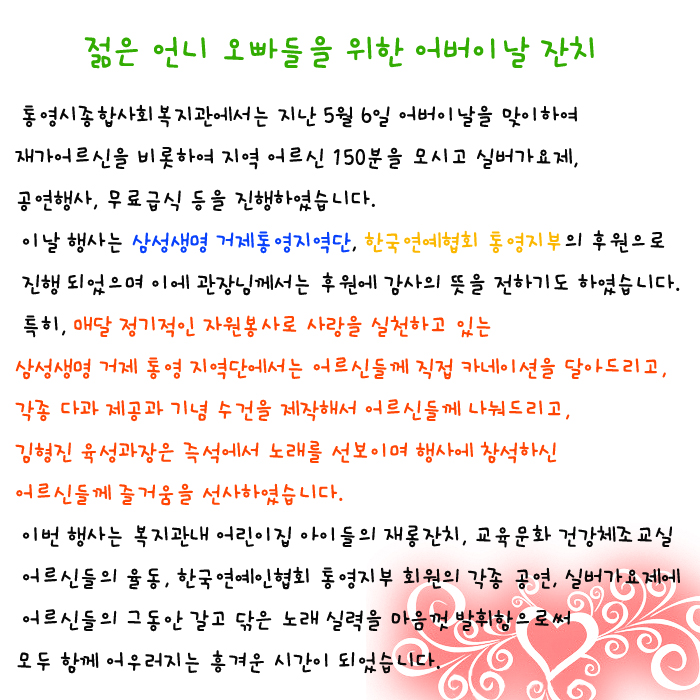 젊은 언니 오빠들을 위한 어버이날 잔치
통영시종합사회복지관에서는 지난 5월 6일 어버이날을 맞이하여
재가어르신을 비롯하여 지역 어르신 150분을 모시고 실버가요제,
공연행사, 무료급식 등을 진행하였습니다.
이날 행사는 삼성생명 거제통영지역단, 한국연예협회 통영지부의 후원으로
진행 되었으며 이에 관장님께서는 후원에 감사의 뜻을 전하기도 하였습니다.
특히, 매달 정기적인 자원봉사로 사랑을 실천하고 있는
삼성생명 거제 통영 지역단에서는 어르신들께 직접 카네이션을 달아드리고,
각종 다과 제공과 기념 수건을 제작해서 어르신들께 나눠드리고,
김형진 육성과장은 즉석에서 노래를 선보이며 행사에 참석하신
어르신들께 즐거움을 선사하였습니다.
이번 행사는 복지관내 어린이집 아이들의 재롱잔치, 교육문화 건강체조교실
어르신들의 율동, 한국연예인협회 통영지부 회원의 각종 공연, 실버가요제에
어르신들의 그동안 갈고 닦은 노래 실력을 마음껏 발휘함으로써
모두 함께 어우러지는 흥겨운 시간이 되었습니다.